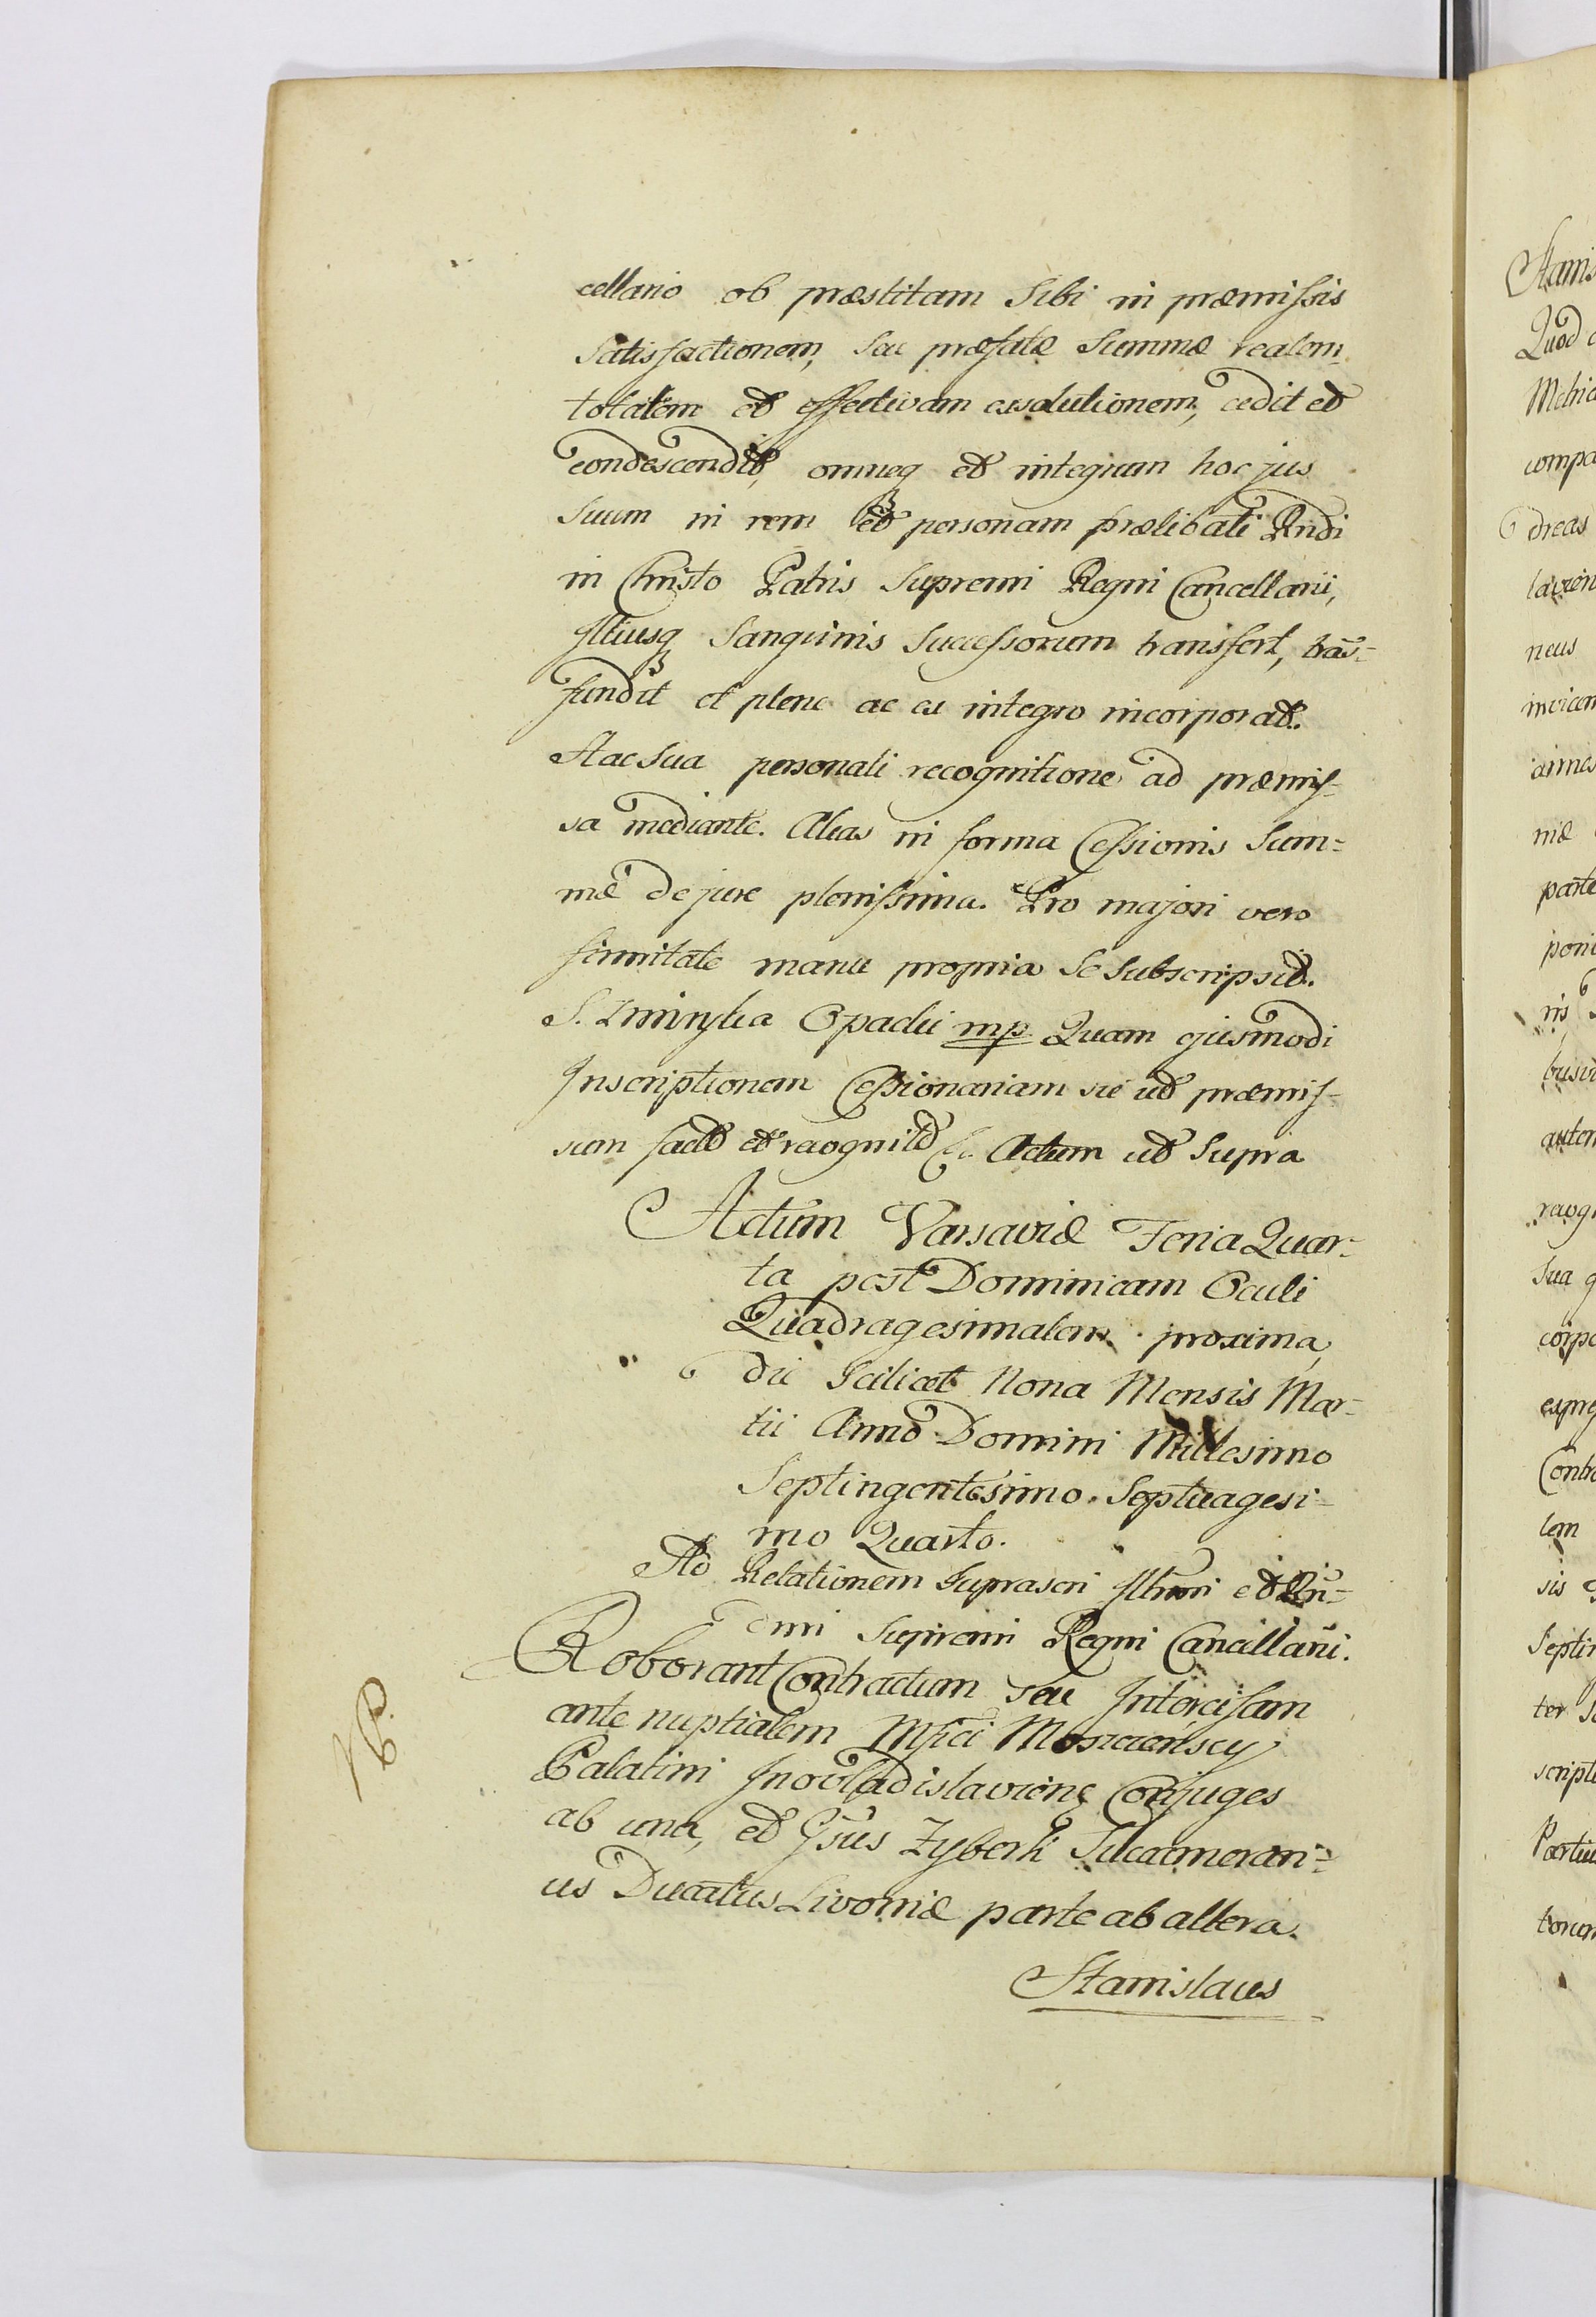 cellario ob præstitam Sibi in præmissis
Satisfactionem, Seu præfatæ Summæ realem
totalem et effectivam exsolutionem, cedit et
condescendit, omneq et integrum hoc jus
Suum in rem et personam prælibati Rndi
in Christo Patris Supremi Regni Cancellarii,
Illiusq Sanguinis Successorum transfert, trãs-
fundit et plene ac ex integro incorporat.
Hac Sua personali recognitione ad præmis-
sa mediante. Alias in forma Cessionis Sum=
mæ de jure plenissima. Pro majori vero
firmitate manu propria Se Subscripsit.
S. Opacki mp. Quam ejusmodi
Inscriptionem Cessionariam sic ut præmis-
sum fact et recognit Ec. Actum ut Supra
Actum Varsaviæ Feria Quar-
ta post Dominicam Oculi
Quadragesimalem proxima,
die Scilicet Nona Mensis Mar-
tii Anno Domini Millesimo
Septingentesimo Septuagesi-
mo Quarto.
Ad Relationem Suprascri Illmi et Rñ-
dmi Supremi Regni Cancellarii.
Roborant Contractum seu Intercisam
ante nuptialem Mfici Moszczeńscy
Palatini Inovladislavienẽ Conjuges
ab una, et Gsus Zyberk Succamerari=
us Ducatus Livoniæ parte ab altera.
Stanislaus
Stanis
Quod
compa
dreas
neus
niæ
parte
nis
autem
Sua
Contra
lem
sis
Septin
ter